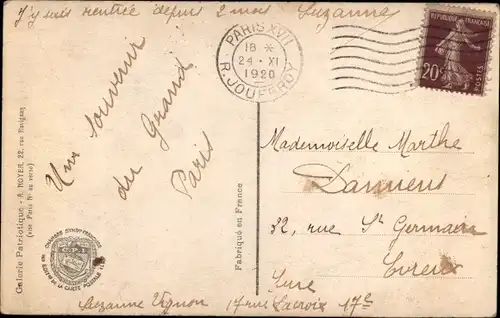 J'y suis rentrée depuis 2 mois Suzanne
Un souvenir
du Grand
Paris
PARIS XVII
18 *
24 - XI
1920
R. JOUFFROY
RÉPUBLIQUE FRANÇAISE
20c
POSTES
Mademoiselle Marthe
Damiens
32, rue St Germain
Evreux
Eure
Suzanne Vignon 17 rue Lacroix 17e
Galerie Patriotique - A. NOYER, 22, rue Ravignan
Fabriqué en France
CHAMBRE SYNDle FRANÇAISE
DE LA CARTE POSTALE